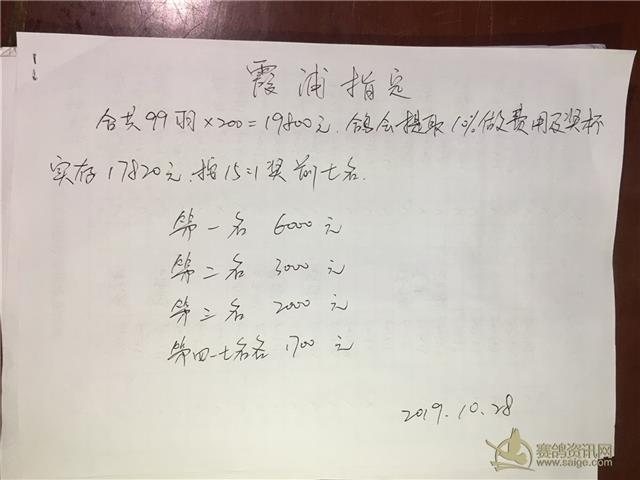 霞浦指定
合共99羽×200=19800元.鸽会提取10%做费用及奖杯
实存17820元.按15:1奖前七名.
第一名 6000元
第二名 3000元
第三名 2000元
第四-七名各 1700元
2019.10.28
赛鸽资讯网
www.saige.com